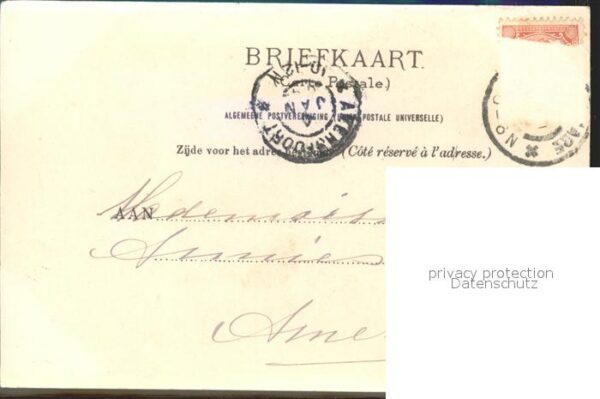 BRIEFKAART.
(Carte Postale)
ALGEMEENE POSTVEREENIGING (UNION POSTALE UNIVERSELLE)
Zijde voor het adres bestemd. (Côté réservé à l'adresse.)
AMERSFOORT
JAN
10-12V
AAN Mademois
Annies
Ame
privacy protection
Datenschutz